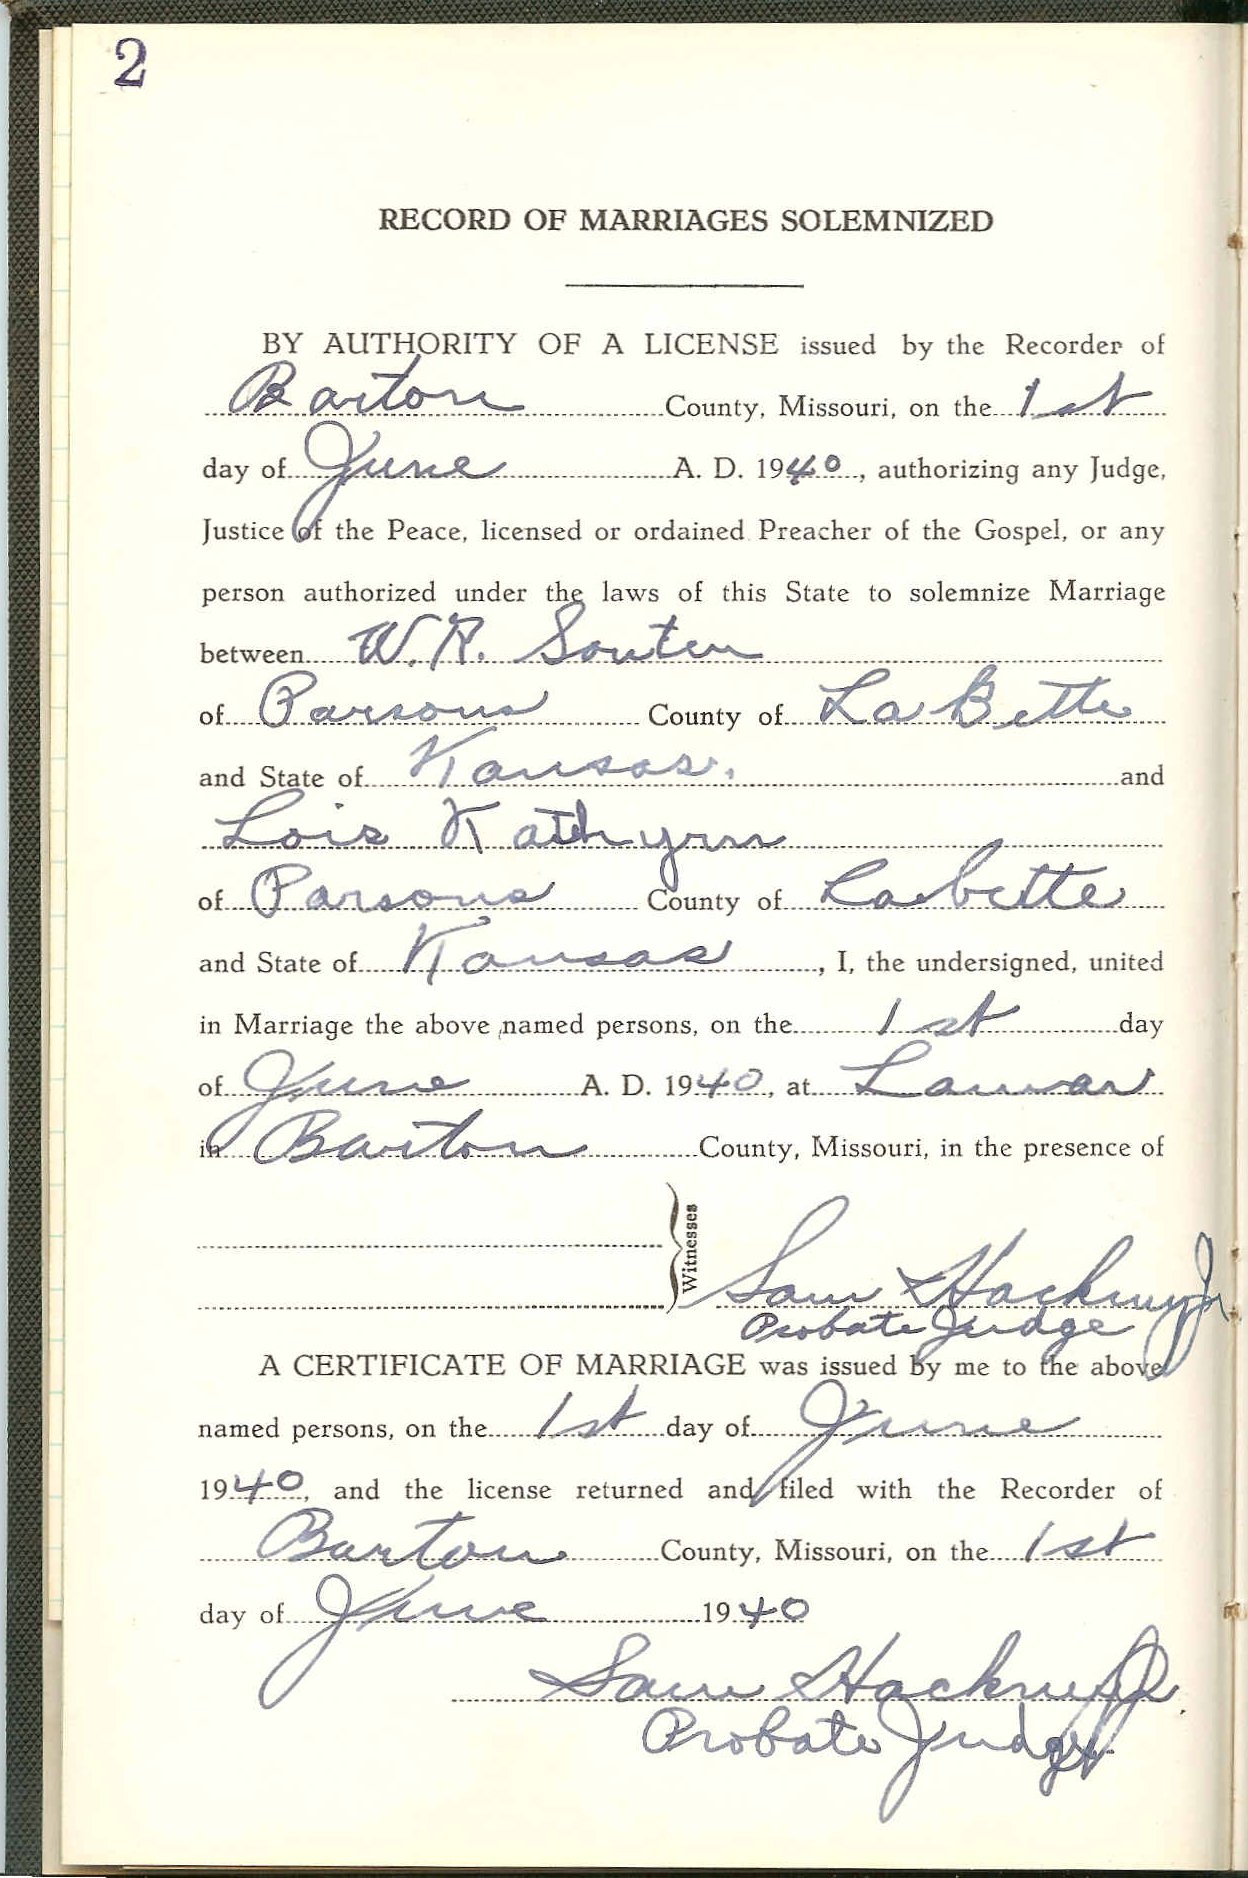 2
RECORD OF MARRIAGES SOLEMNIZED
BY AUTHORITY OF A LICENSE issued by the Recorder of
Barton County, Missouri, on the 1st
day of June A. D. 1940, authorizing any Judge,
Justice of the Peace, licensed or ordained Preacher of the Gospel, or any
person authorized under the laws of this State to solemnize Marriage
between W. R. Souter
of Parsons County of La Bette
and State of Kansas. and
Lois Kathyrn
of Parsons County of Labette
and State of Kansas, I, the undersigned, united
in Marriage the above named persons, on the 1st day
of June A. D. 1940, at Lamar
in Barton County, Missouri, in the presence of
Witnesses
Sam Hackney Jr
Probate Judge
A CERTIFICATE OF MARRIAGE was issued by me to the above
named persons, on the 1st day of June
1940, and the license returned and filed with the Recorder of
Barton County, Missouri, on the 1st
day of June 1940
Sam Hackney Jr.
Probate Judge